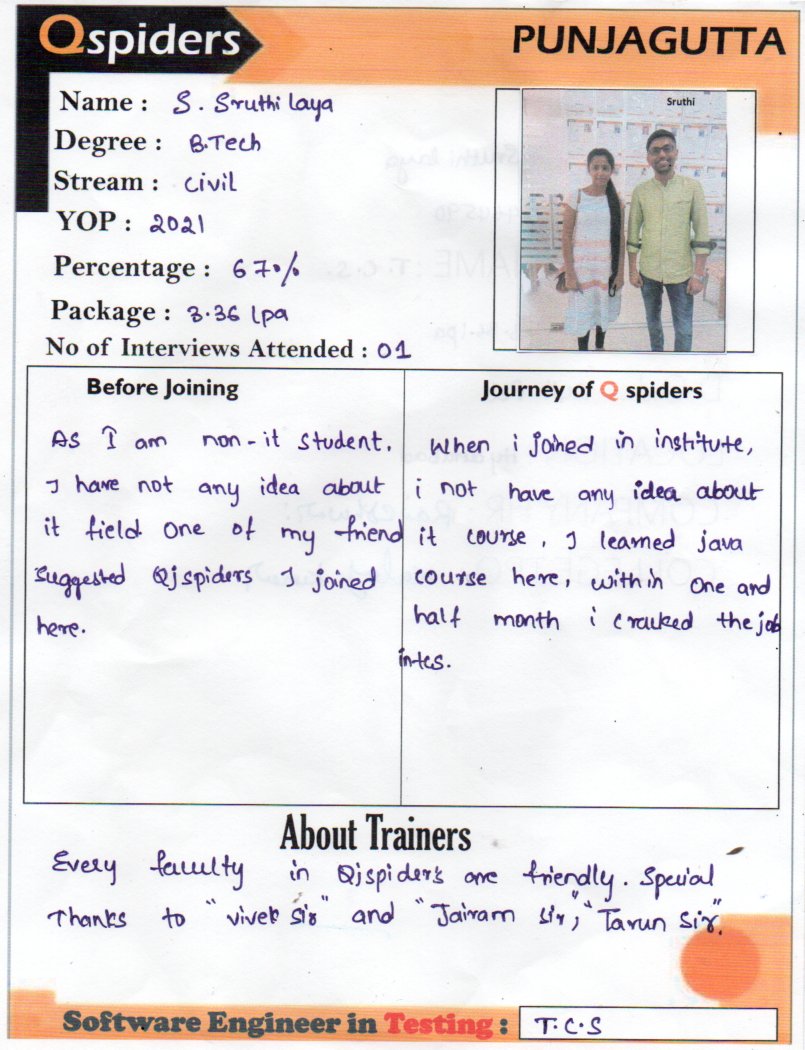 Qspiders
PUNJAGUTTA
Name : S. Sruthi Laya
Degree : B.Tech
Stream : civil
YOP : 2021
Percentage : 67%
Package : 3.36 lpa
No of Interviews Attended : 01
Sruthi
Before Joining
As I am non-it student.
I have not any idea about
it field one of my friend
suggested Qjspiders I joined
here.
Journey of Q spiders
When i joined in institute,
i not have any idea about
it course, I learned java
course here, within one and
half month i cracked the job
in tcs.
About Trainers
Every faculty in Qjspiders are friendly. Special
Thanks to "vivek sir" and "Jairam sir", "Tarun sir".
Software Engineer in Testing : T.C.S